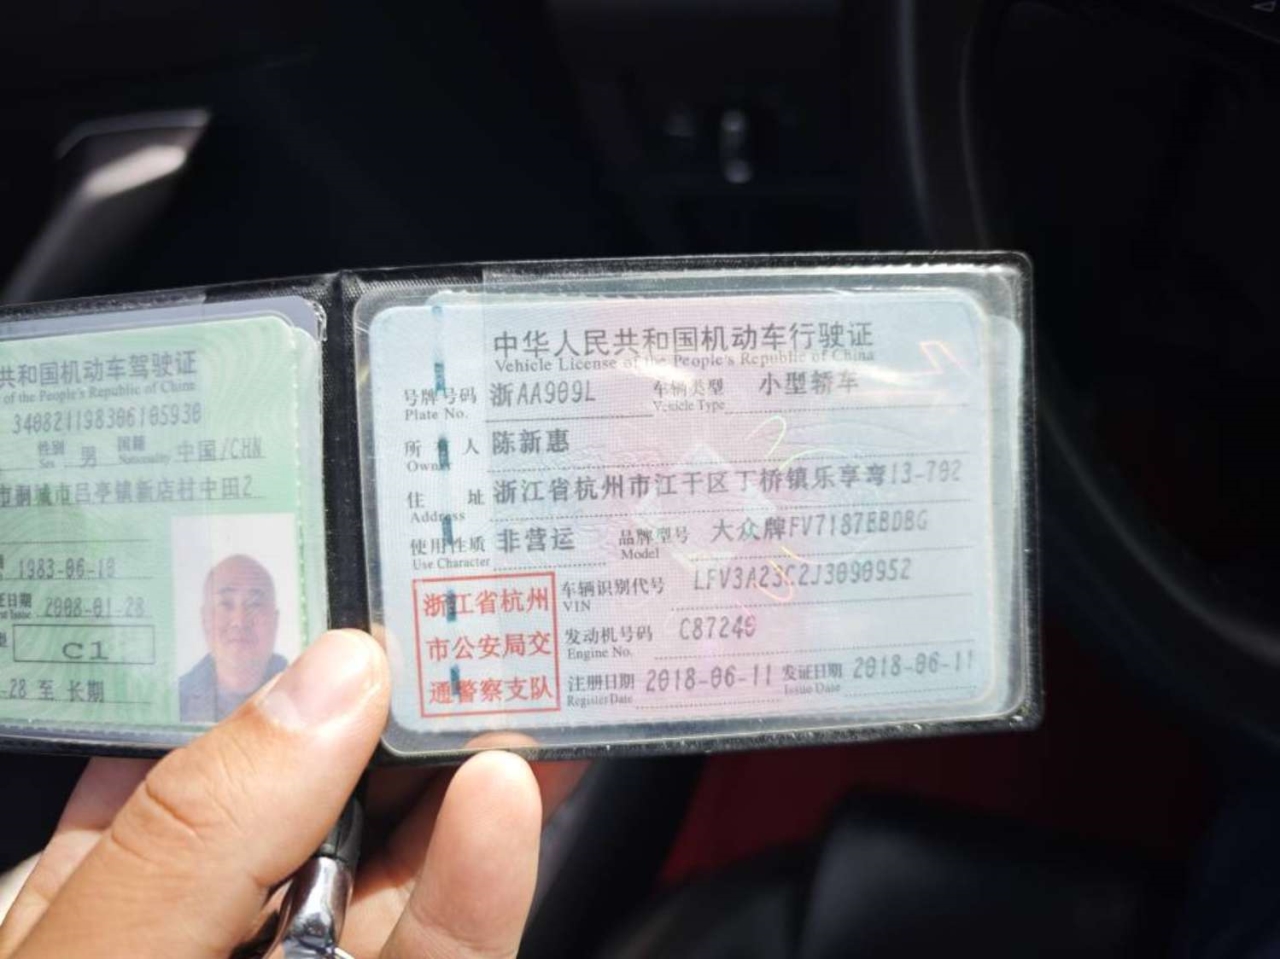 共和国机动车驾驶证
of the People's Republic of China
340821198306105930
性别 男 国籍 中国/CHN
Sex Nationality
市桐城市吕亭镇新店村中田2
1983-06-10
证日期 2008-01-28
C1
-28 至 长期
中华人民共和国机动车行驶证
Vehicle License of the People's Republic of China
号牌号码 浙AA909L 车辆类型 小型轿车
Plate No. Vehicle Type
所 有 人 陈新惠
Owner
住 址 浙江省杭州市江干区丁桥镇乐享弯13-702
Address
使用性质 非营运 品牌型号 大众牌FV7187BBDBG
Use Character Model
浙江省杭州
市公安局交
通警察支队
车辆识别代号 LFV3A23C2J3090952
VIN
发动机号码 C87240
Engine No.
注册日期 2018-06-11 发证日期 2018-06-11
Register Date Issue Date